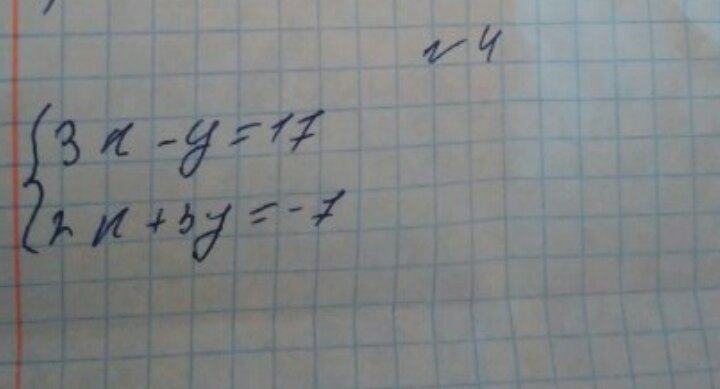 № 4
{3x - y = 17
2x + 3y = -7